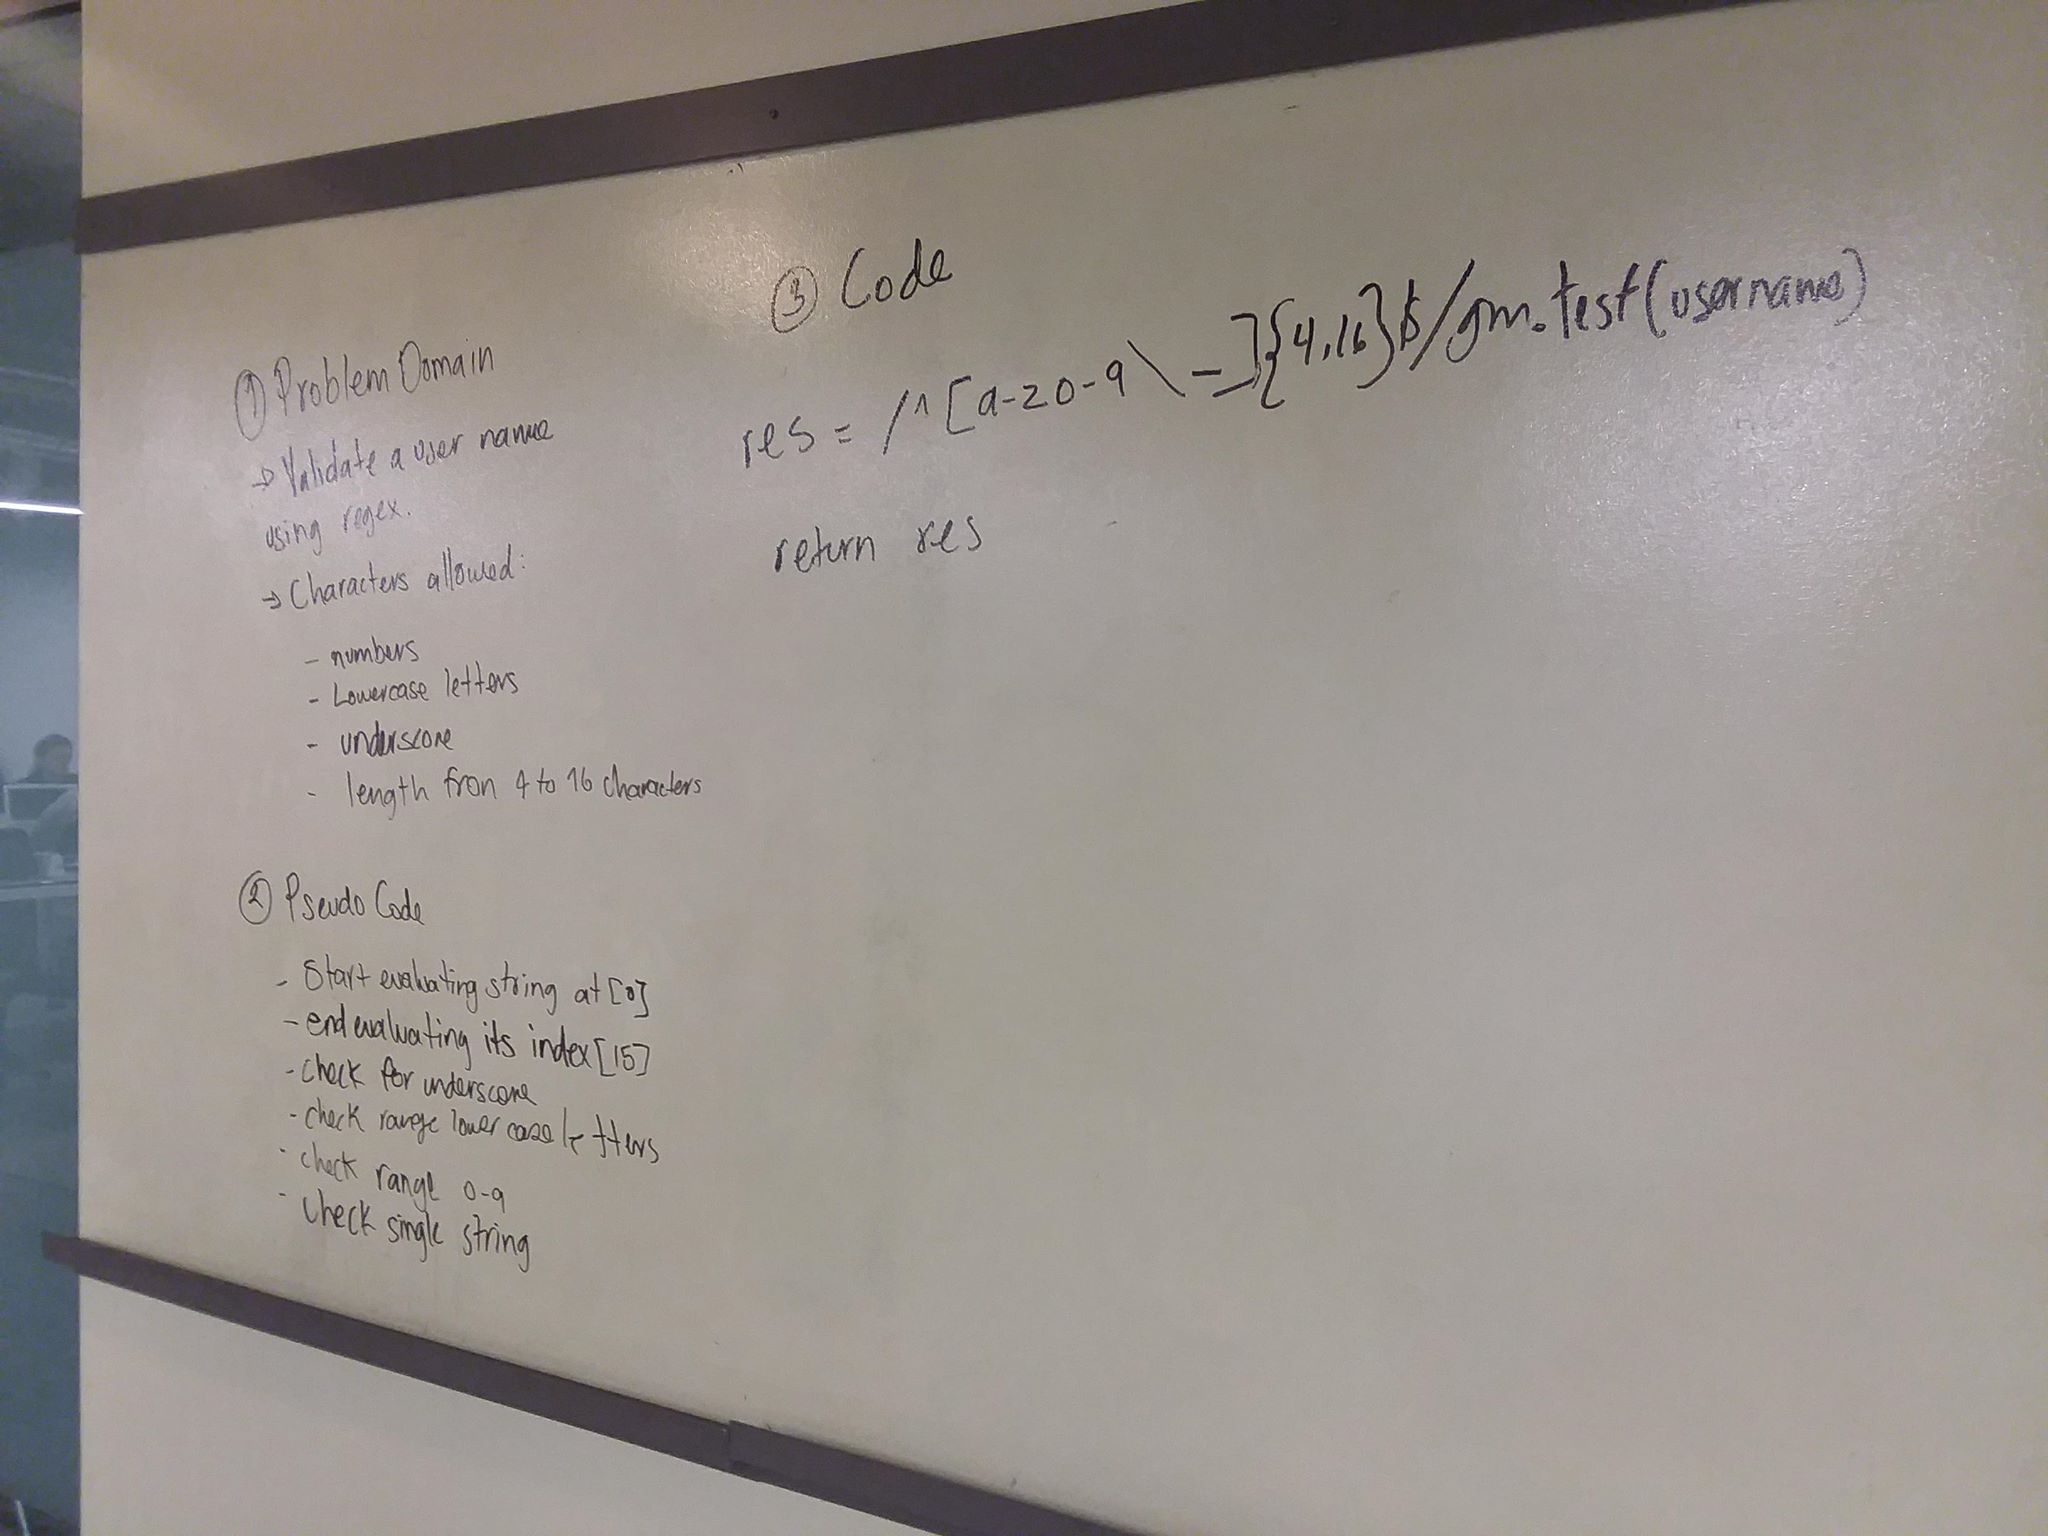 ① Problem Domain
→ Validate a user name
using regex.
→ Characters allowed:
- numbers
- Lowercase letters
- underscore
- length from 4 to 16 characters
② Pseudo Code
- Start evaluating string at [0]
- end evaluating its index [15]
- check for underscore
- check range lower case letters
- check range 0-9
- check single string
③ Code
res = /^[a-z0-9\_]{4,16}$/gm.test(username)
return res